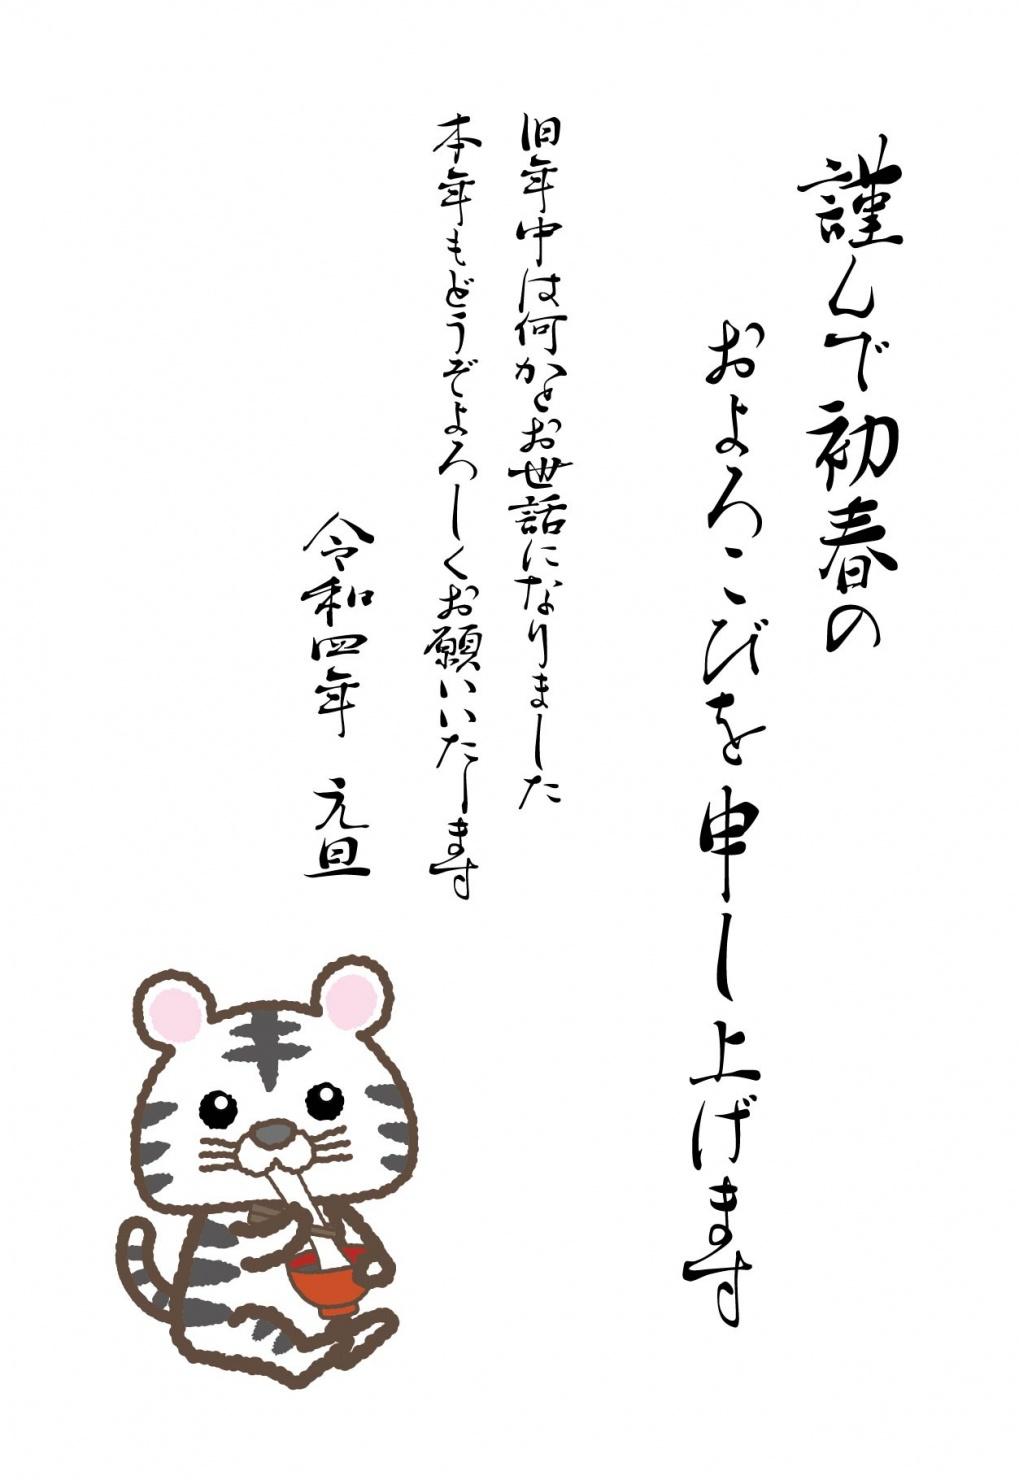 謹んで初春の
およろこびを申し上げます
旧年中は何かとお世話になりました
本年もどうぞよろしくお願いいたします
令和四年　元旦